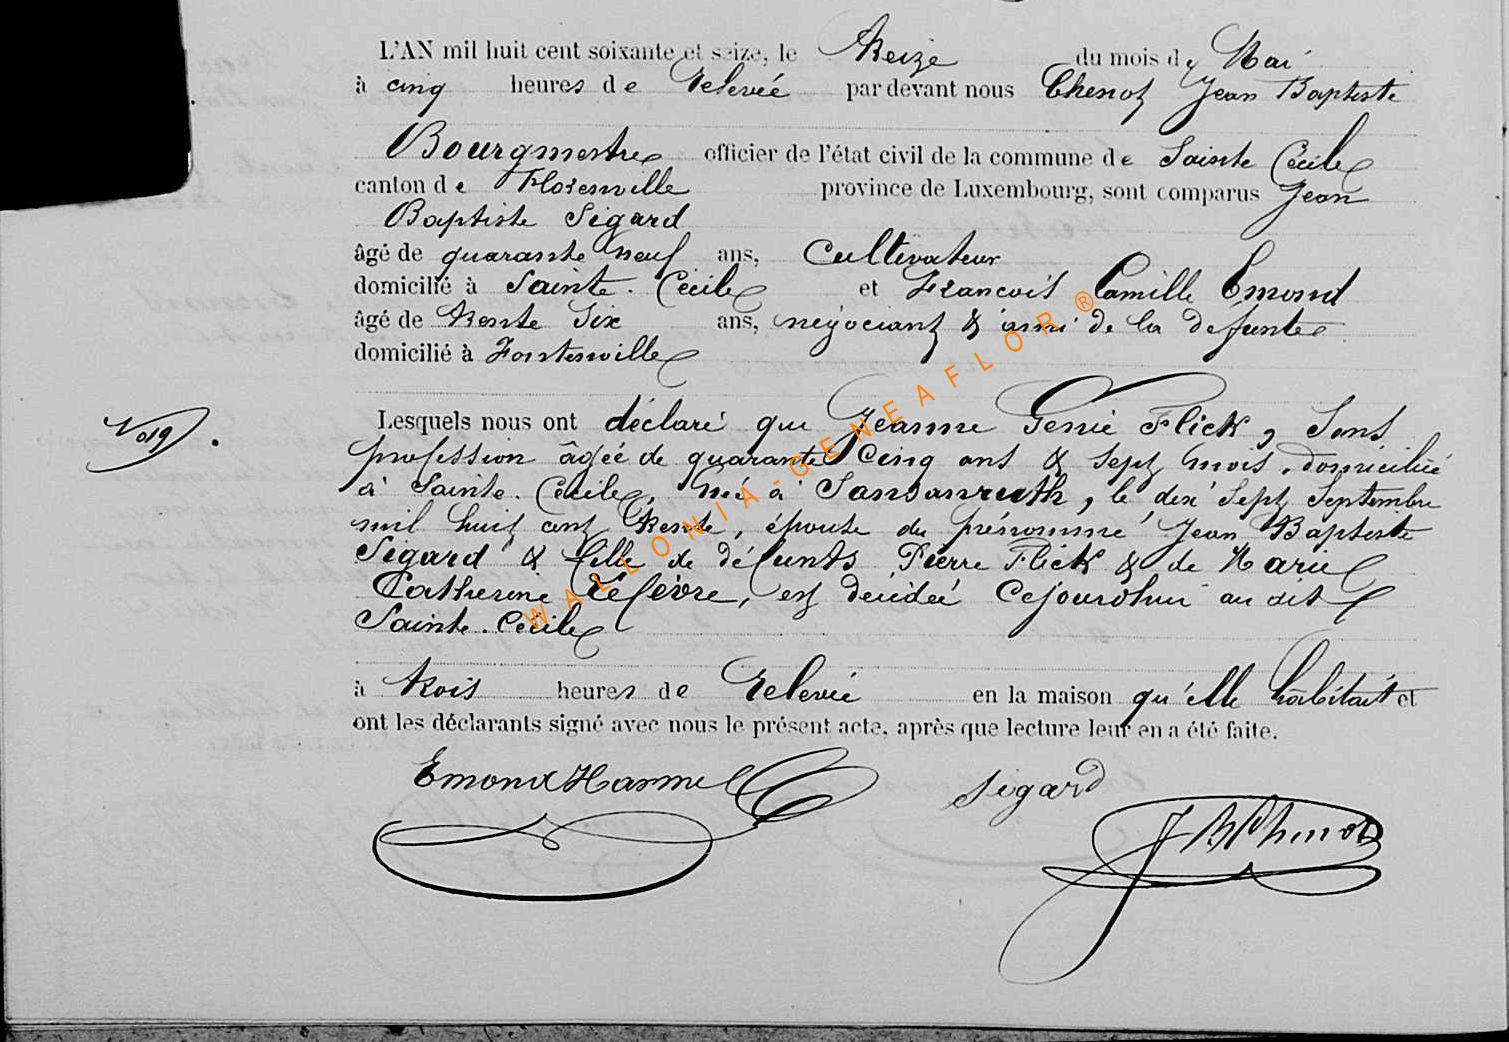 L'AN mil huit cent soixante et seize, le treize du mois de Mai
à cinq heures de relevée pardevant nous Chenot Jean Baptiste
Bourgmestre officier de l'état civil de la commune de Sainte Cécile
canton de Florenville province de Luxembourg, sont comparus Jean
Baptiste Sigard
âgé de quarante neuf ans, Cultivateur
domicilié à Sainte-Cécile et François Camille Emond
âgé de trente Six ans, négociant & ami de la defunte
domicilié à Fontenoille
No 19.
Lesquels nous ont déclaré que Jeanne Genie Flick, Sans
profession âgée de quarante Cinq ans & Sept mois, domiciliée
à Sainte-Cécile, née à Sansanruth, le dix Sept Septembre
mil huit cent trente, épouse du prénommé Jean Baptiste
Sigard & fille de défunts Pierre Flick & de Marie
Catherine Lefèvre, est décédée Cejourdhui au dit
Sainte-Cécile
à trois heures de relevée en la maison qu'elle habitait et
ont les déclarants signé avec nous le présent acte, après que lecture leur en a été faite.
Emond Harmel Sigard
JB Chenot
WALLONIA-GENEAFLOR ®